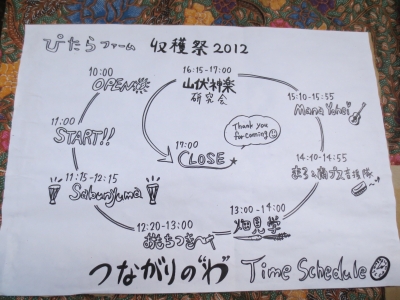 ぴたらファーム 収穫祭2012
10:00
OPEN
11:00
START!!
11:15-12:15
Sabunyuma
12:20-13:00
おもちつき
13:00-14:00
畑見学
14:10-14:55
15:10-15:55
Mana Yohei
16:15-17:00
山伏神楽
研究会
17:00
CLOSE
Thank you
for coming
つながりの"わ" Time Schedule